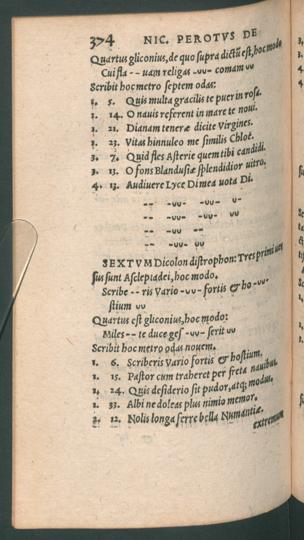 374 NIC. PEROTVS DE
Quartus gliconius, de quo supra dictũ est, hoc modo
Cui fla -- uam religas -vv- comam vv
Scribit hoc metro septem odas:
1. 5. Quis multa gracilis te puer in rosa.
1. 14. O nauis referent in mare te noui.
1. 21. Dianam teneræ dicite Virgines.
1. 23. Vitas hinnuleo me similis Chloë.
3. 7. Quid fles Asterie quem tibi candidi.
3. 13. O fons Blandusiæ splendidior uitro.
4. 13. Audiuere Lyce Di mea uota Di.
-- -vv- -vv- v-
-- -vv- -vv- vv
-- vv --
-- -vv- vv
SEXTVM Dicolon distrophon: Tres primi uer
sus sunt Asclepiadei, hoc modo.
Scribe -- ris Vario -vv- fortis & ho -vv-
stium vv
Quartus est gliconius, hoc modo:
Miles -- te duce ges -vv- serit vv
Scribit hoc metro odas nouem.
1. 6. Scriberis Vario fortis & hostium.
1. 15. Pastor cum traheret per freta nauibus.
1. 24. Quis desiderio sit pudor, atq; modus.
1. 33. Albi ne doleas plus nimio memor.
2. 12. Nolis longa ferre bella Numantiæ.
extremum